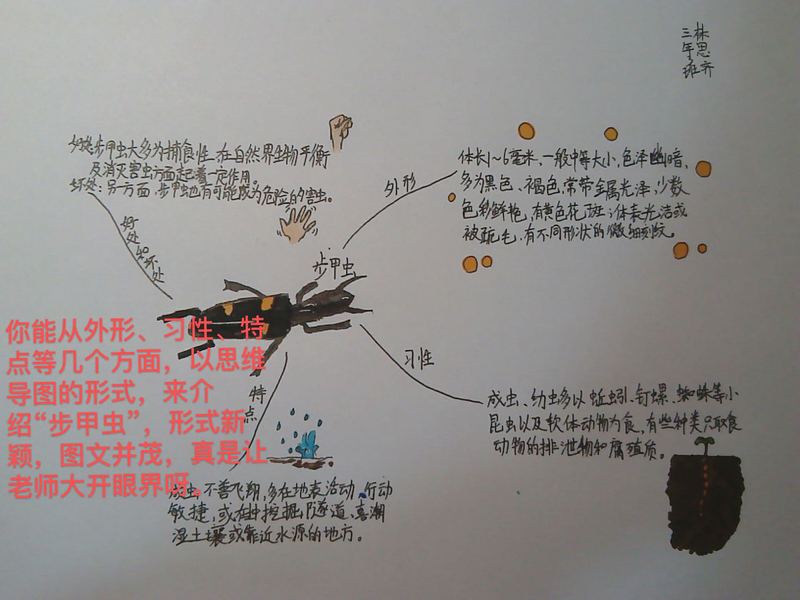 三年 班
林思齐
好处:步甲虫大多为捕食性,在自然界生物平衡
及消灭害虫方面起着一定作用。
坏处:另一方面,步甲虫也有可能成为危险的害虫。
好处和坏处
外形
体长1~6毫米,一般中等大小,色泽幽暗,
多为黑色、褐色,常带金属光泽,少数
色彩鲜艳,有黄色花斑;体表光洁或
被疏毛,有不同形状的微细刻纹。
步甲虫
习性
成虫、幼虫多以蚯蚓、钉螺、蜘蛛等小
昆虫以及软体动物为食,有些种类只取食
动物的排泄物和腐殖质。
特点
成虫不善飞翔,多在地表活动,行动
敏捷,或在土中挖掘隧道,喜潮
湿土壤或靠近水源的地方。
你能从外形、习性、特
点等几个方面,以思维
导图的形式,来介
绍“步甲虫”,形式新
颖,图文并茂,真是让
老师大开眼界呀。